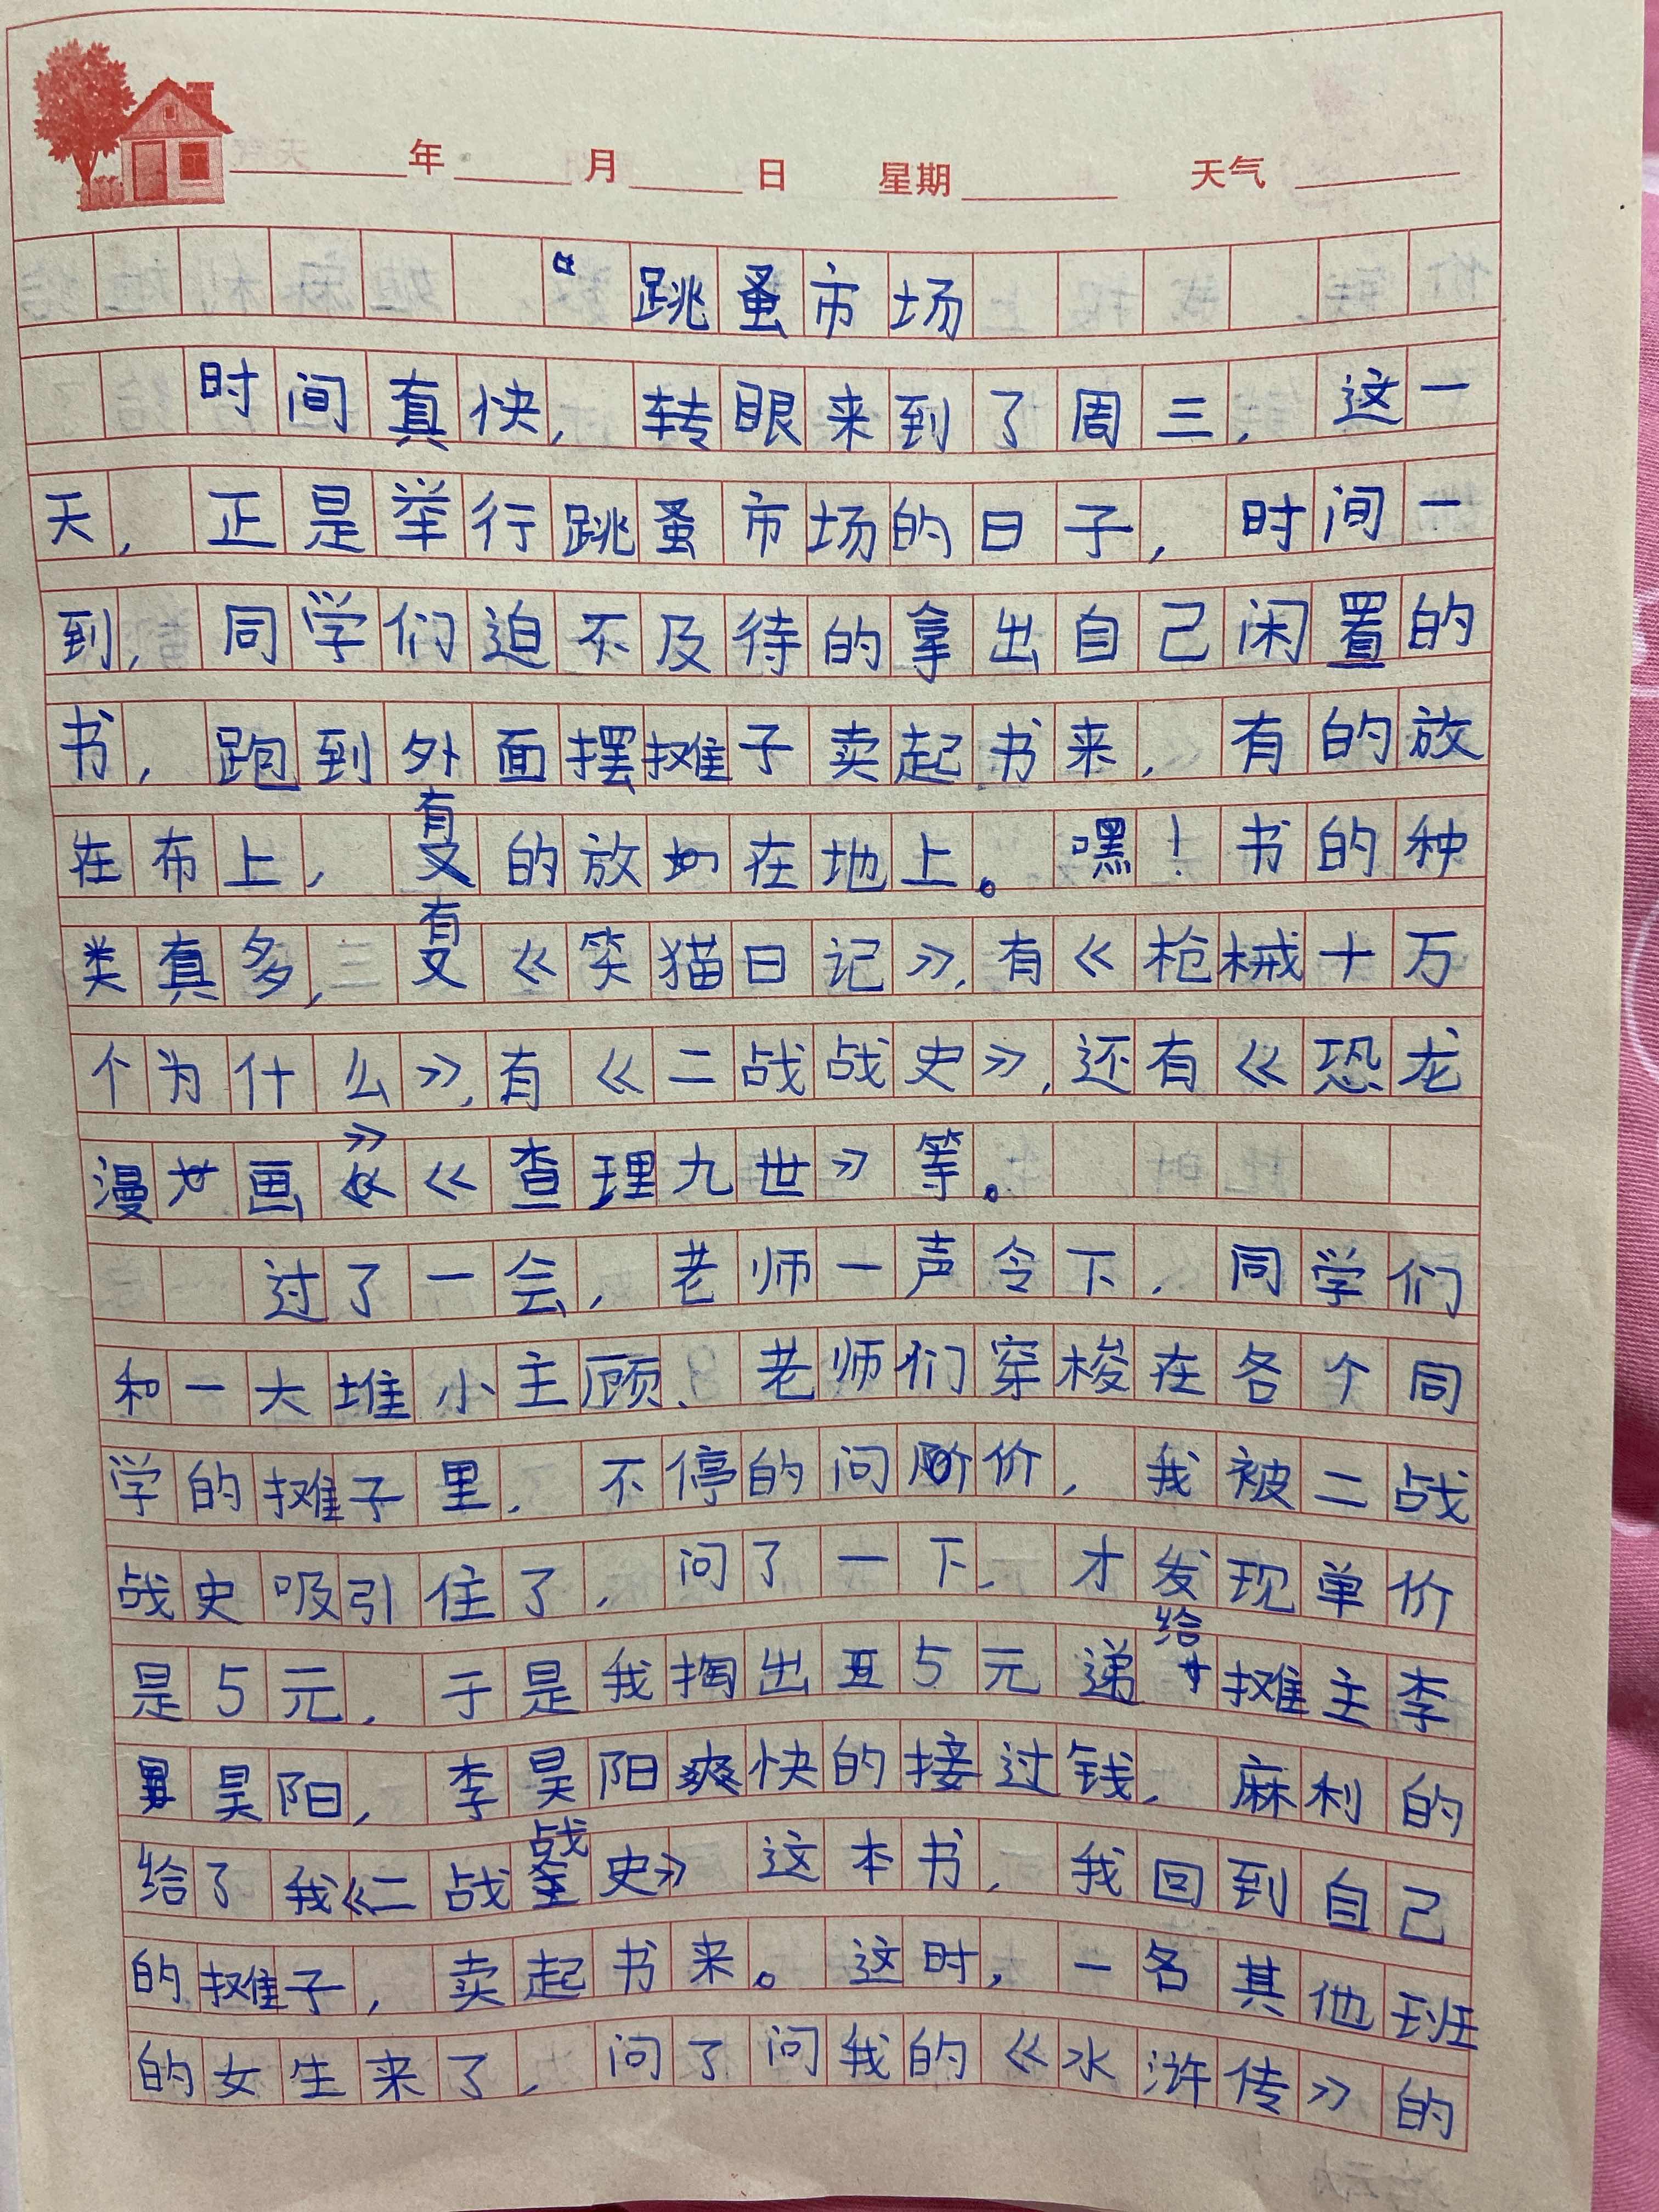 年 月 日 星期 天气
跳蚤市场
时间真快,转眼来到了周三,这一
天,正是举行跳蚤市场的日子,时间一
到,同学们迫不及待的拿出自己闲置的
书,跑到外面摆摊子卖起书来,有的放
在布上,有的放在地上。嘿!书的种
类真多,有《笑猫日记》,有《枪械十万
个为什么》,有《二战战史》,还有《恐龙
漫画》《查理九世》等。
过了一会,老师一声令下,同学们
和一大堆小主顾、老师们穿梭在各个同
学的摊子里,不停的问价,我被二战
战史吸引住了,问了一下,才发现单价
是5元,于是我掏出5元递给摊主李
昊阳,李昊阳爽快的接过钱,麻利的
给了我《二战战史》这本书,我回到自己
的摊子,卖起书来。这时,一名其他班
的女生来了,问了问我的《水浒传》的